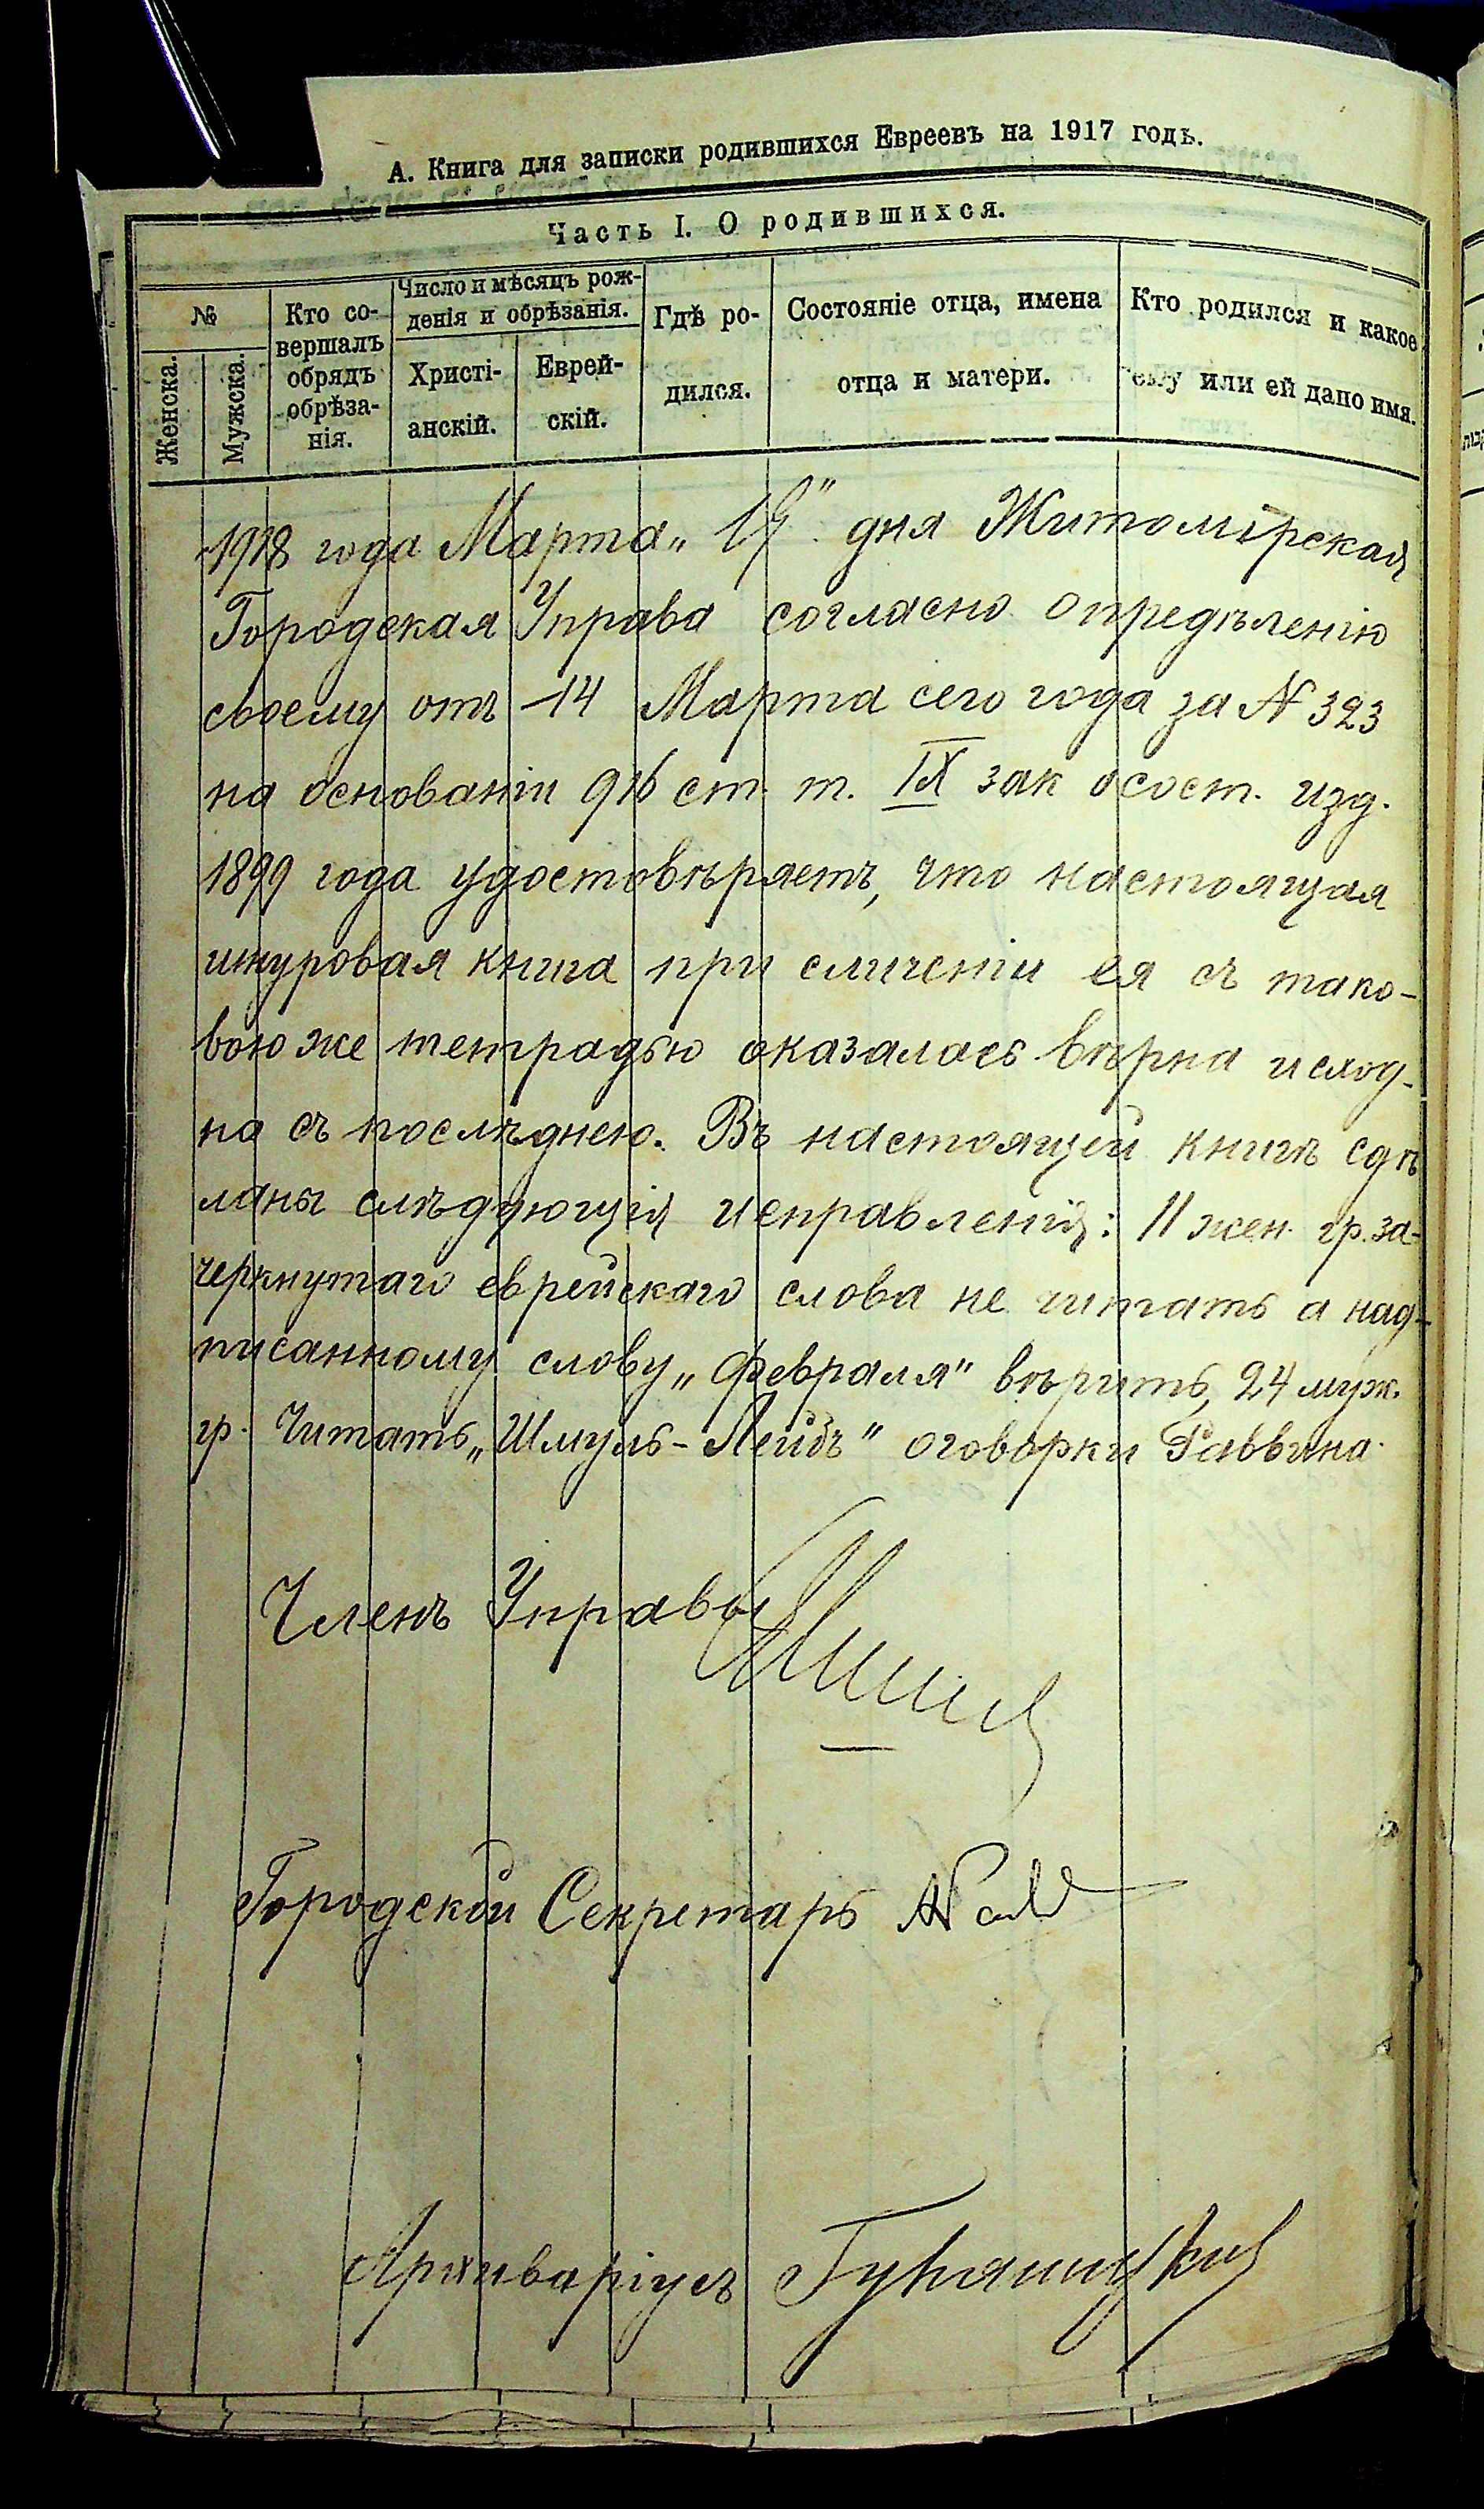 А. Книга для записки родившихся Евреевъ на 1917 годъ.
Часть I. О родившихся.
№
Женска.
Мужска.
Кто со-
вершалъ
обрядъ
обрѣза-
нія.
Число и мѣсяцъ рож-
денія и обрѣзанія.
Христі-
анскій.
Еврей-
скій.
Гдѣ ро-
дился.
Состояніе отца, имена
отца и матери.
Кто родился и какое
ему или ей дано имя.
1918 года Марта „ " дня Житомірская
Городская Управа согласно опредѣленію
своему отъ 14 Марта сего года за № 323
на основаніи 916 ст. т. IX зак о сост. изд.
1899 года удостовѣряетъ, что настоящая
шнуровая книга при сличеніи ея съ тако-
вою же тетрадью оказалась вѣрна и сход-
на съ послѣднею. Въ настоящей книгѣ сдѣ
ланы слѣдующія исправленія: 11 жен. гр. за-
черкнутаго еврейскаго слова не читать а над-
писанному слову „Февраля" вѣрить, 24 муж.
гр. Читать „Шмуль-Лейбъ" оговорки Раввина.
Членъ Управы
Городской Секретарь
Архиваріусъ